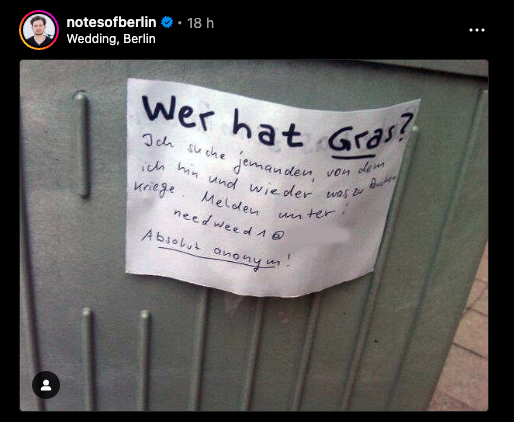 notesofberlin • 18 h
Wedding, Berlin
Wer hat Gras?
Ich suche jemanden, von dem
ich hin und wieder was zu Rauchen
kriege. Melden unter:
needweed1@
Absolut anonym!